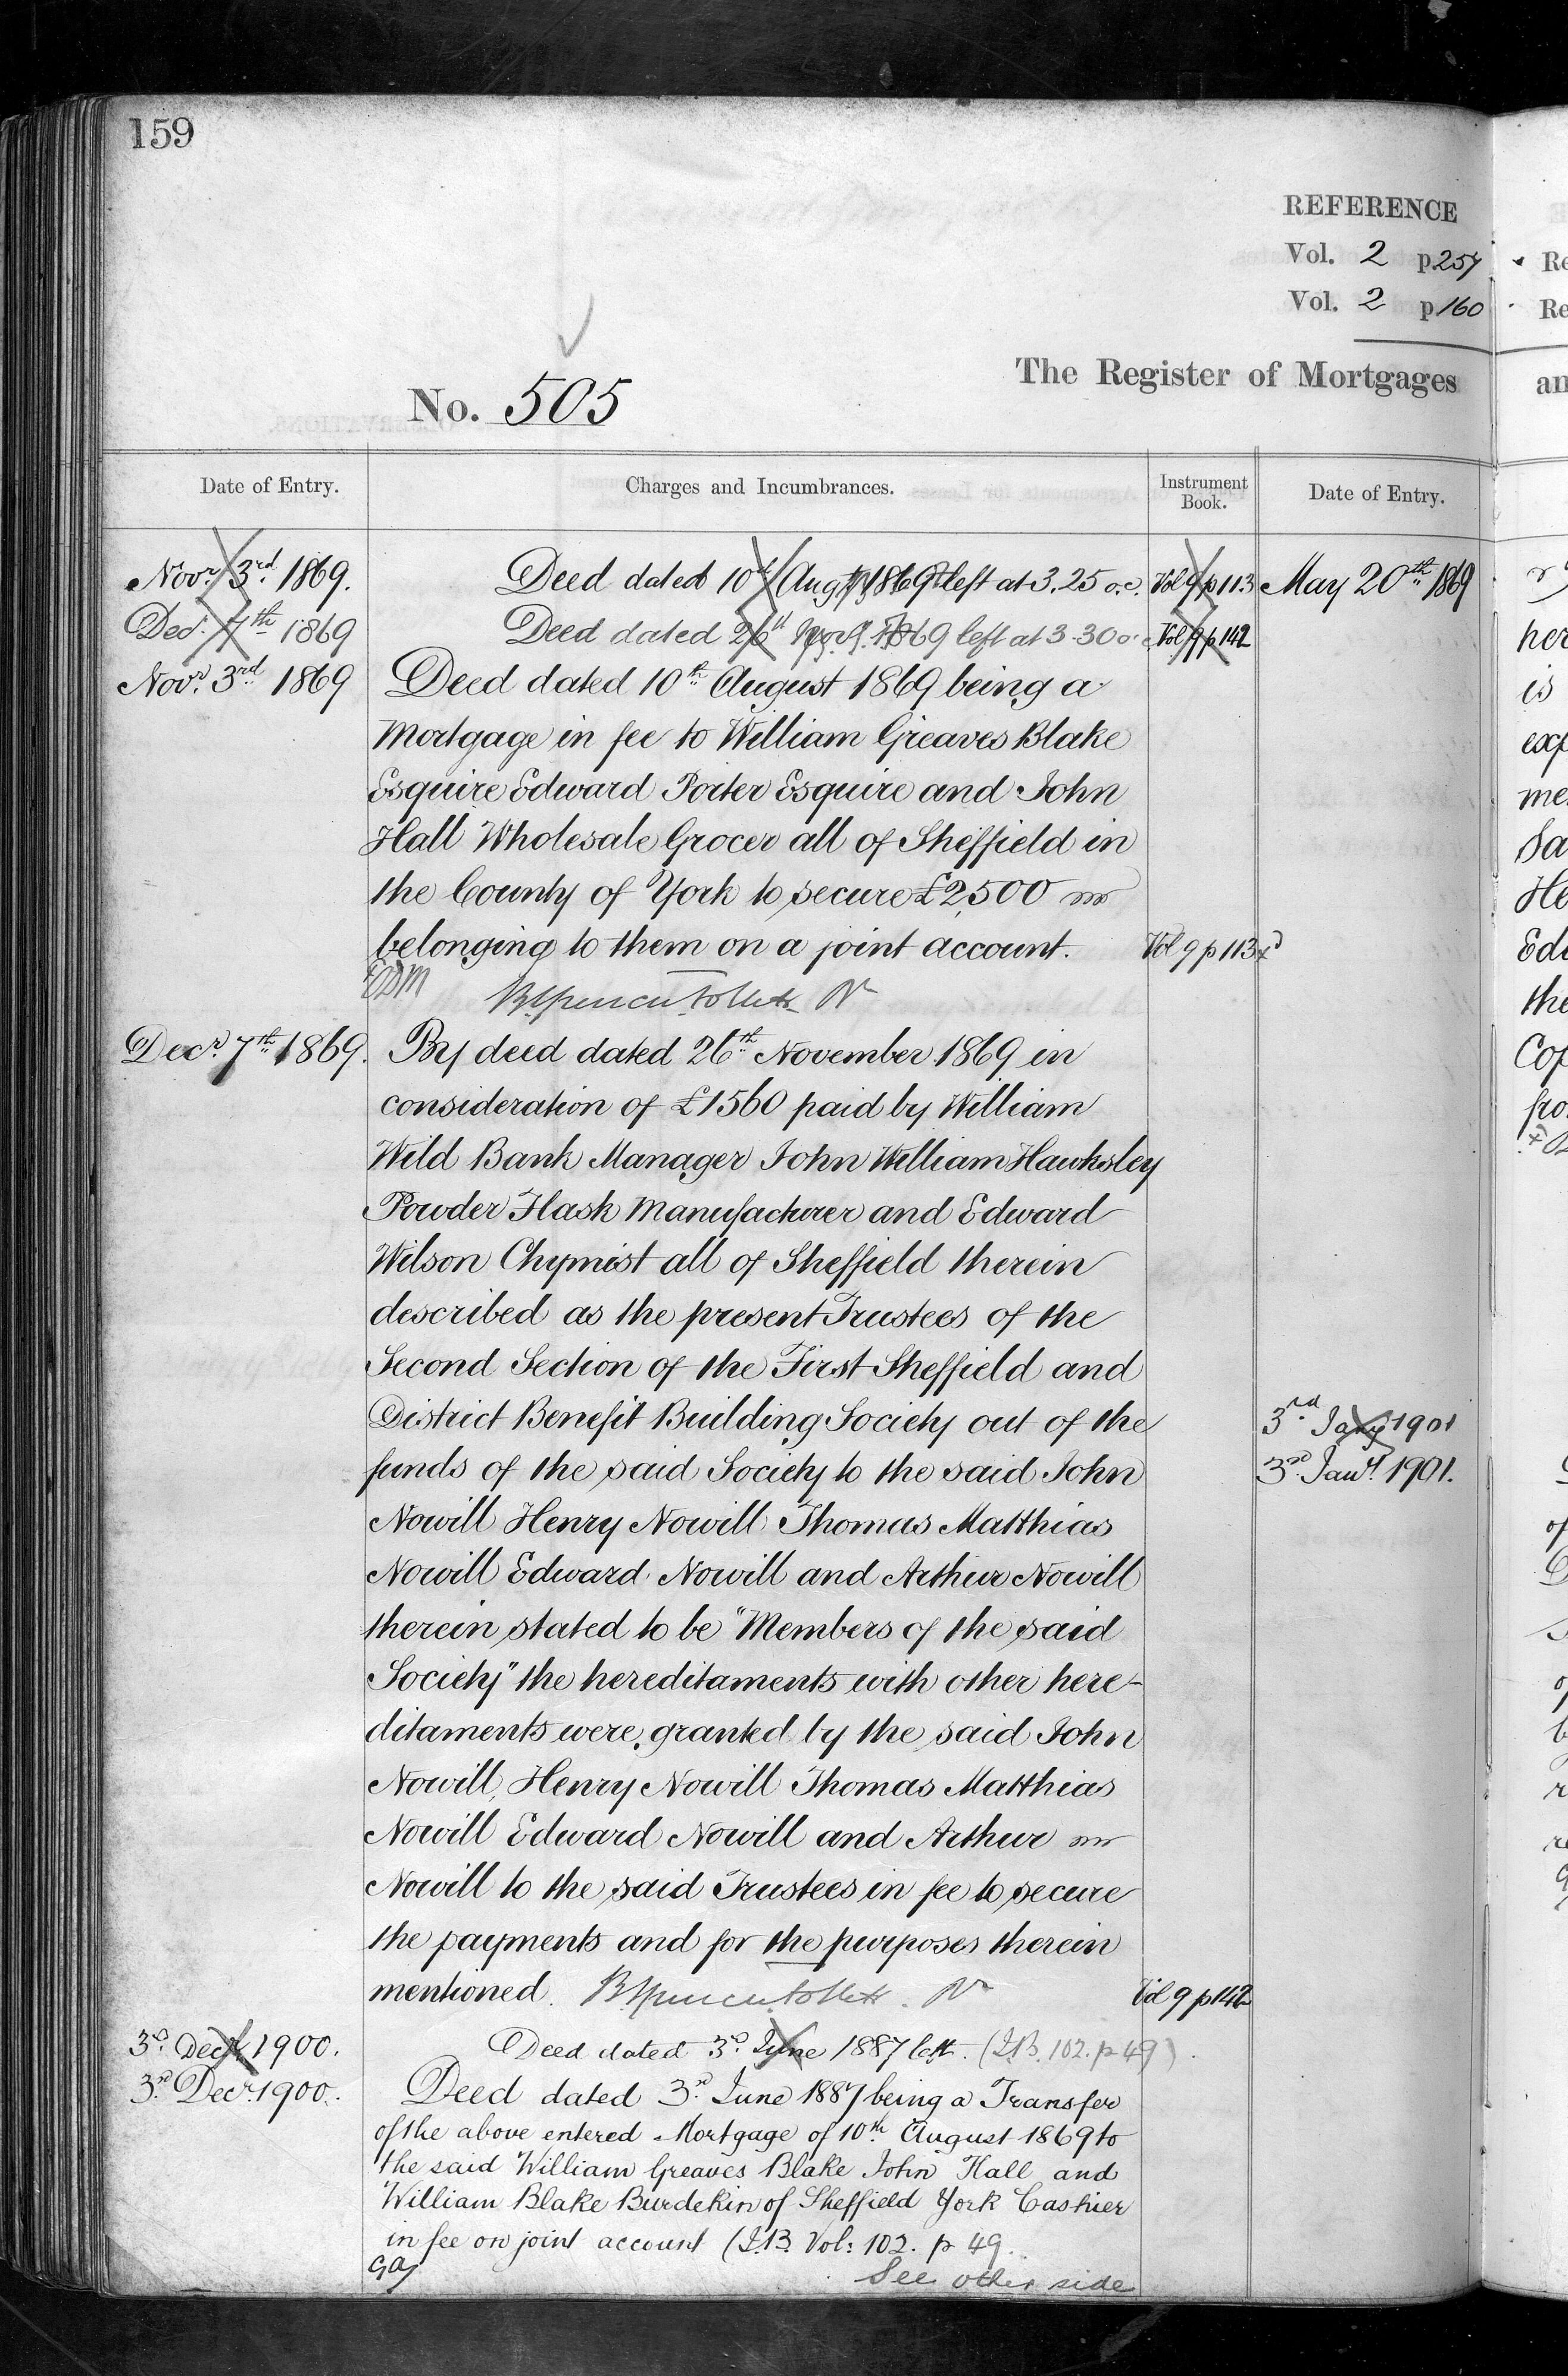 159
REFERENCE
Vol. 2 p 257
Vol. 2 p 160
The Register of Mortgages
No. 505
Date of Entry. Charges and Incumbrances. Instrument Book. Date of Entry.
Novr. 3rd. 1869. Deed dated 10th Aug 1869 left at 3.25 o.c. Vol 9 p 113 May 20th 1869
Dec. 7th 1869 Deed dated 26th Novr. 1869 left at 3.30 o. Vol 9 p 142
Novr. 3rd 1869 Deed dated 10th August 1869 being a
Mortgage in fee to William Greaves Blake
Esquire Edward Porter Esquire and John
Hall Wholesale Grocer all of Sheffield in
the County of York to secure £2,500
belonging to them on a joint account. Vol 9 p 113
Decr. 7th 1869. By deed dated 26th November 1869 in
consideration of £1560 paid by William
Wild Bank Manager John William Hawksley
Powder Flask Manufacturer and Edward
Wilson Chymist all of Sheffield therein
described as the present Trustees of the
Second Section of the First Sheffield and
District Benefit Building Society out of the
3rd. Jany 1901
funds of the said Society to the said John
3rd. Jany. 1901.
Nowill Henry Nowill Thomas Matthias
Nowill Edward Nowill and Arthur Nowill
therein stated to be "Members of the said
Society" the hereditaments with other here-
ditaments were granted by the said John
Nowill, Henry Nowill Thomas Matthias
Nowill Edward Nowill and Arthur
Nowill to the said Trustees in fee to secure
the payments and for the purposes therein
mentioned. Vol 9 p 142
3d. Decr 1900. Deed dated 3d. June 1887 left. (I.B. 102. p 49)
3rd Decr. 1900. Deed dated 3rd June 1887 being a Transfer
of the above entered Mortgage of 10th August 1869 to
the said William Greaves Blake John Hall and
William Blake Burdekin of Sheffield York Cashier
in fee on joint account (I.B. Vol: 102. p 49.
See other side